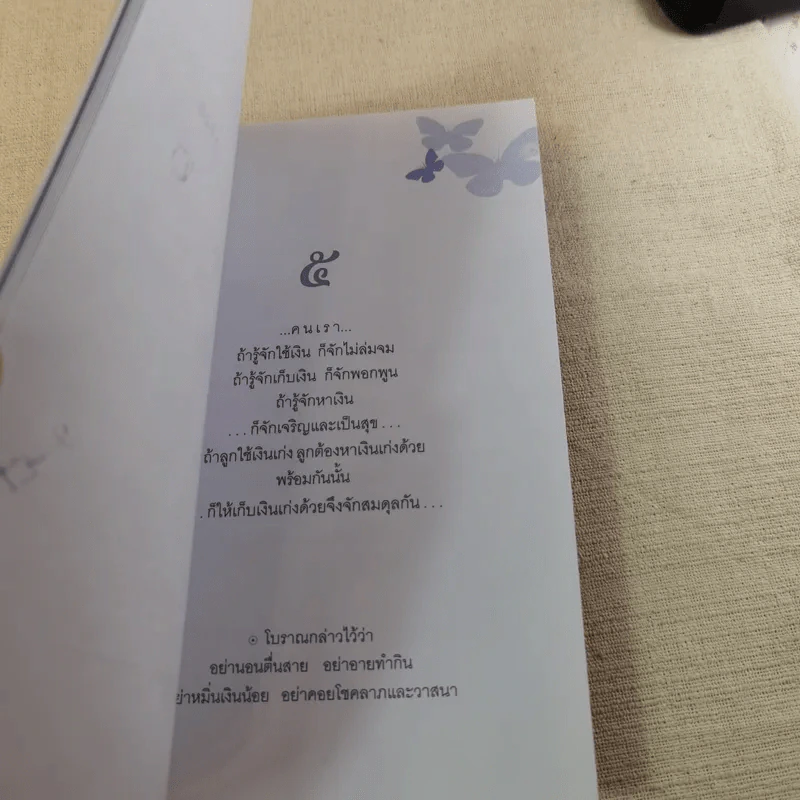 ๕
...คนเรา...
ถ้ารู้จักใช้เงิน ก็จักไม่ล่มจม
ถ้ารู้จักเก็บเงิน ก็จักพอกพูน
ถ้ารู้จักหาเงิน
...ก็จักเจริญและเป็นสุข...
ถ้าลูกใช้เงินเก่ง ลูกต้องหาเงินเก่งด้วย
พร้อมกันนั้น
. ก็ให้เก็บเงินเก่งด้วยจึงจักสมดุลกัน...
๏ โบราณกล่าวไว้ว่า
อย่านอนตื่นสาย อย่าอายทำกิน
ย่าหมิ่นเงินน้อย อย่าคอยโชคลาภและวาสนา